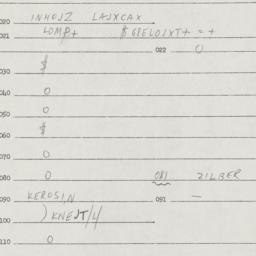 020 INHOJZ LAJXCAX
021 LOMP+ $GDELOJXT+ = +
022 O
030 $
040 O
050 O
060 $
070 O
080 O 081 ZILBER
090 KEROSIN 091 —
100 ) KNEJT/4
110 O